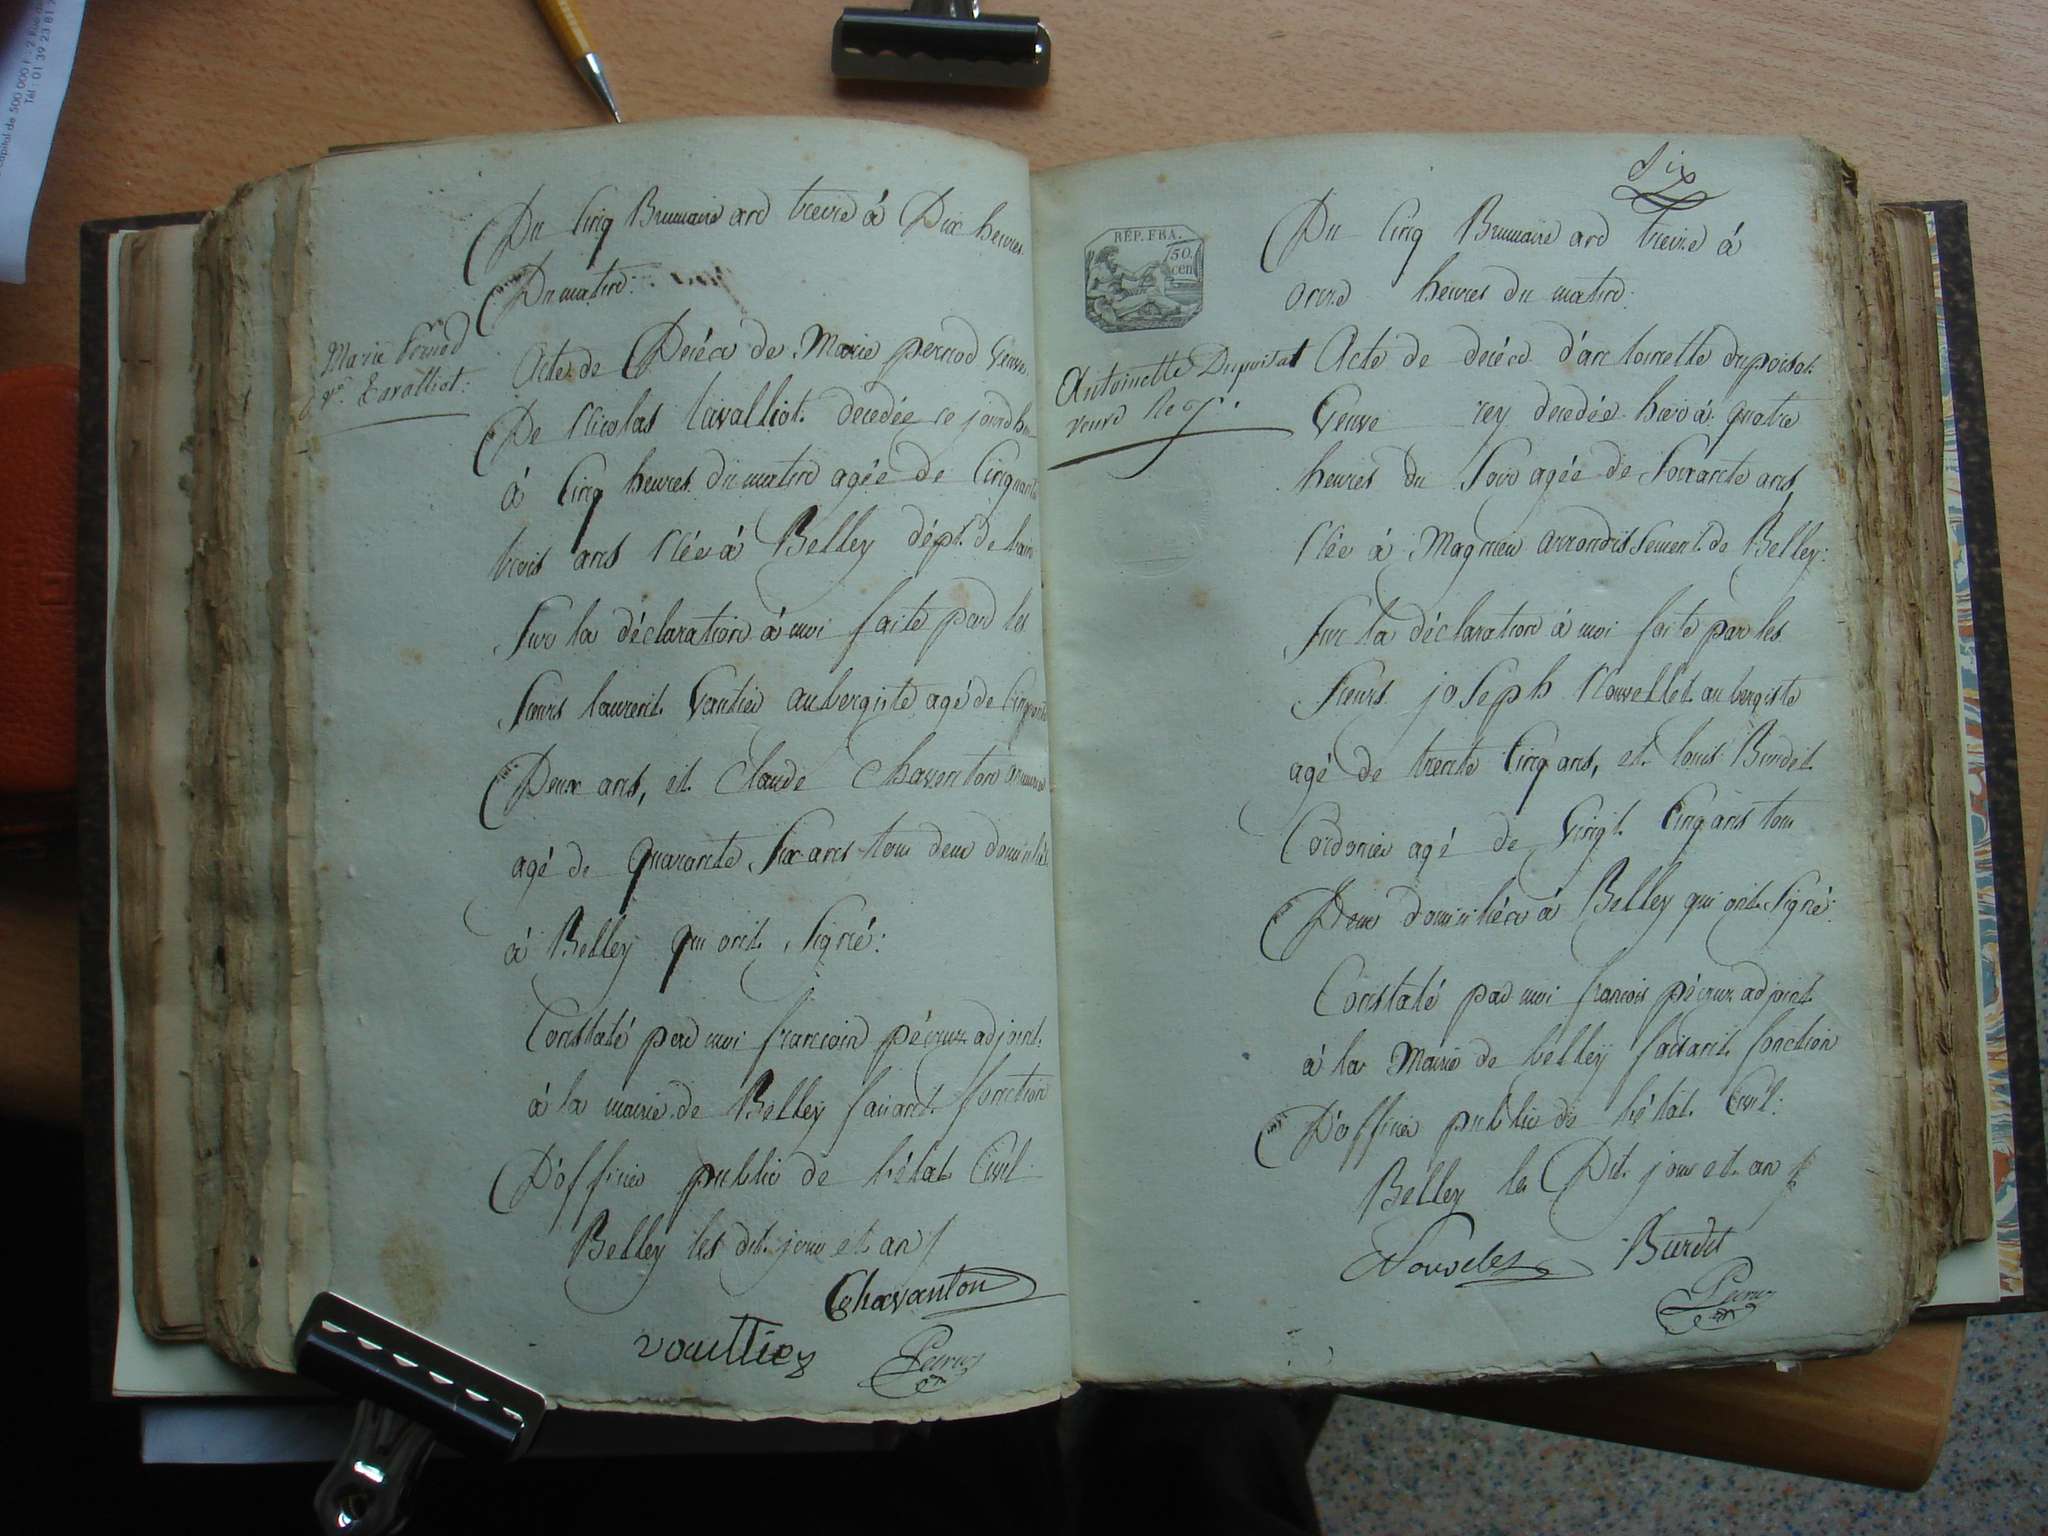 Capital de 500 000 F. - 2 Rue
Tél : 01 39 23 81
Du Cinq Brumaire and treize à Dix heures
Du matin:
Marie Perned
vᵉ Lavalliot:
Acte de Décéa de Marie pernod Veuve
De Nicolas Lavalliot decedée ce jourdhui
à Cinq heures du matin agée de Cinquante
trois ans Née à Belley dépt. de lain
Sur la déclaration à moi faite par les
Sieurs laurent Vautier aubergiste agé de Cinquante
Deux ans, et Claude Chaventon
agé de quarante Six ans tous deux domiciliés
à Belley qui ont Signé:
Constaté par moi francois pécruz adjoint
à la mairie de Belley faisant fonction
D'officier public de l'état Civil
Belley les dit jour et an
Chavanton
vouttiez
Pecruz
Six
RÉP. FRA.
50.
cen
Du Cinq Brumaire and treize à
onze heures du matin:
Antoinette Dupoisat
veuve Rey
Acte de decéa d'antoinette dupoisat
Veuve rey decedée hier à quatre
heures du Soir agée de Soixante ans,
Née à Magnieu arrondissement de Belley:
Sur la déclaration à moi faite par les
Sieurs joseph Nouvellet aubergiste
agé de trente Cinq ans, et louis Burdet
Cordonier agé de Vingt Cinq ans tous
Deux domiciliéa à Belley qui ont Signé:
Constaté par moi francois pécruz adjoint
à la Mairie de belley faisant fonction
D'officier public de l'état Civil:
Belley les Dit jour et an
Burdet
Pecruz